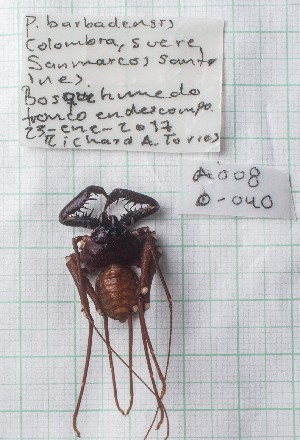 P. barbadensis
Colombia, Sucre,
San marcos, Santa
Ines.
Bosque humedo
tronco en descompo.
23-ene-2017
Richard A. Torres
A008
0-040